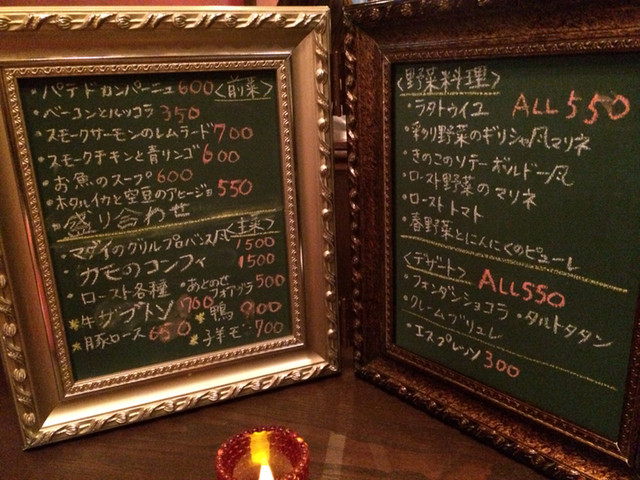 ・パテドカンパーニュ600 <前菜>
・ベーコンとルッコラ 350
・スモークサーモンのレムラード700
・スモークチキンと青リンゴ 600
・お魚のスープ600
・ホタルイカと空豆のアヒージョ 550
盛り合わせ
・マダイのグリルプロバンス風 <主菜> 1500
・カモのコンフィ 1500
・ロースト各種 ・あとのせフォアグラ 500
牛ザブトン 700 鴨 900
豚ロース 650 子羊モモ 700
<野菜料理>
・ラタトゥイユ ALL 550
・彩り野菜のギリシャ風マリネ
・きのこのソテーボルドー風
・ロースト野菜のマリネ
・ローストトマト
・春野菜とにんにくのピューレ
<デザート> ALL 550
・フォンダンショコラ ・タルトタタン
・クレームブリュレ
・エスプレッソ 300